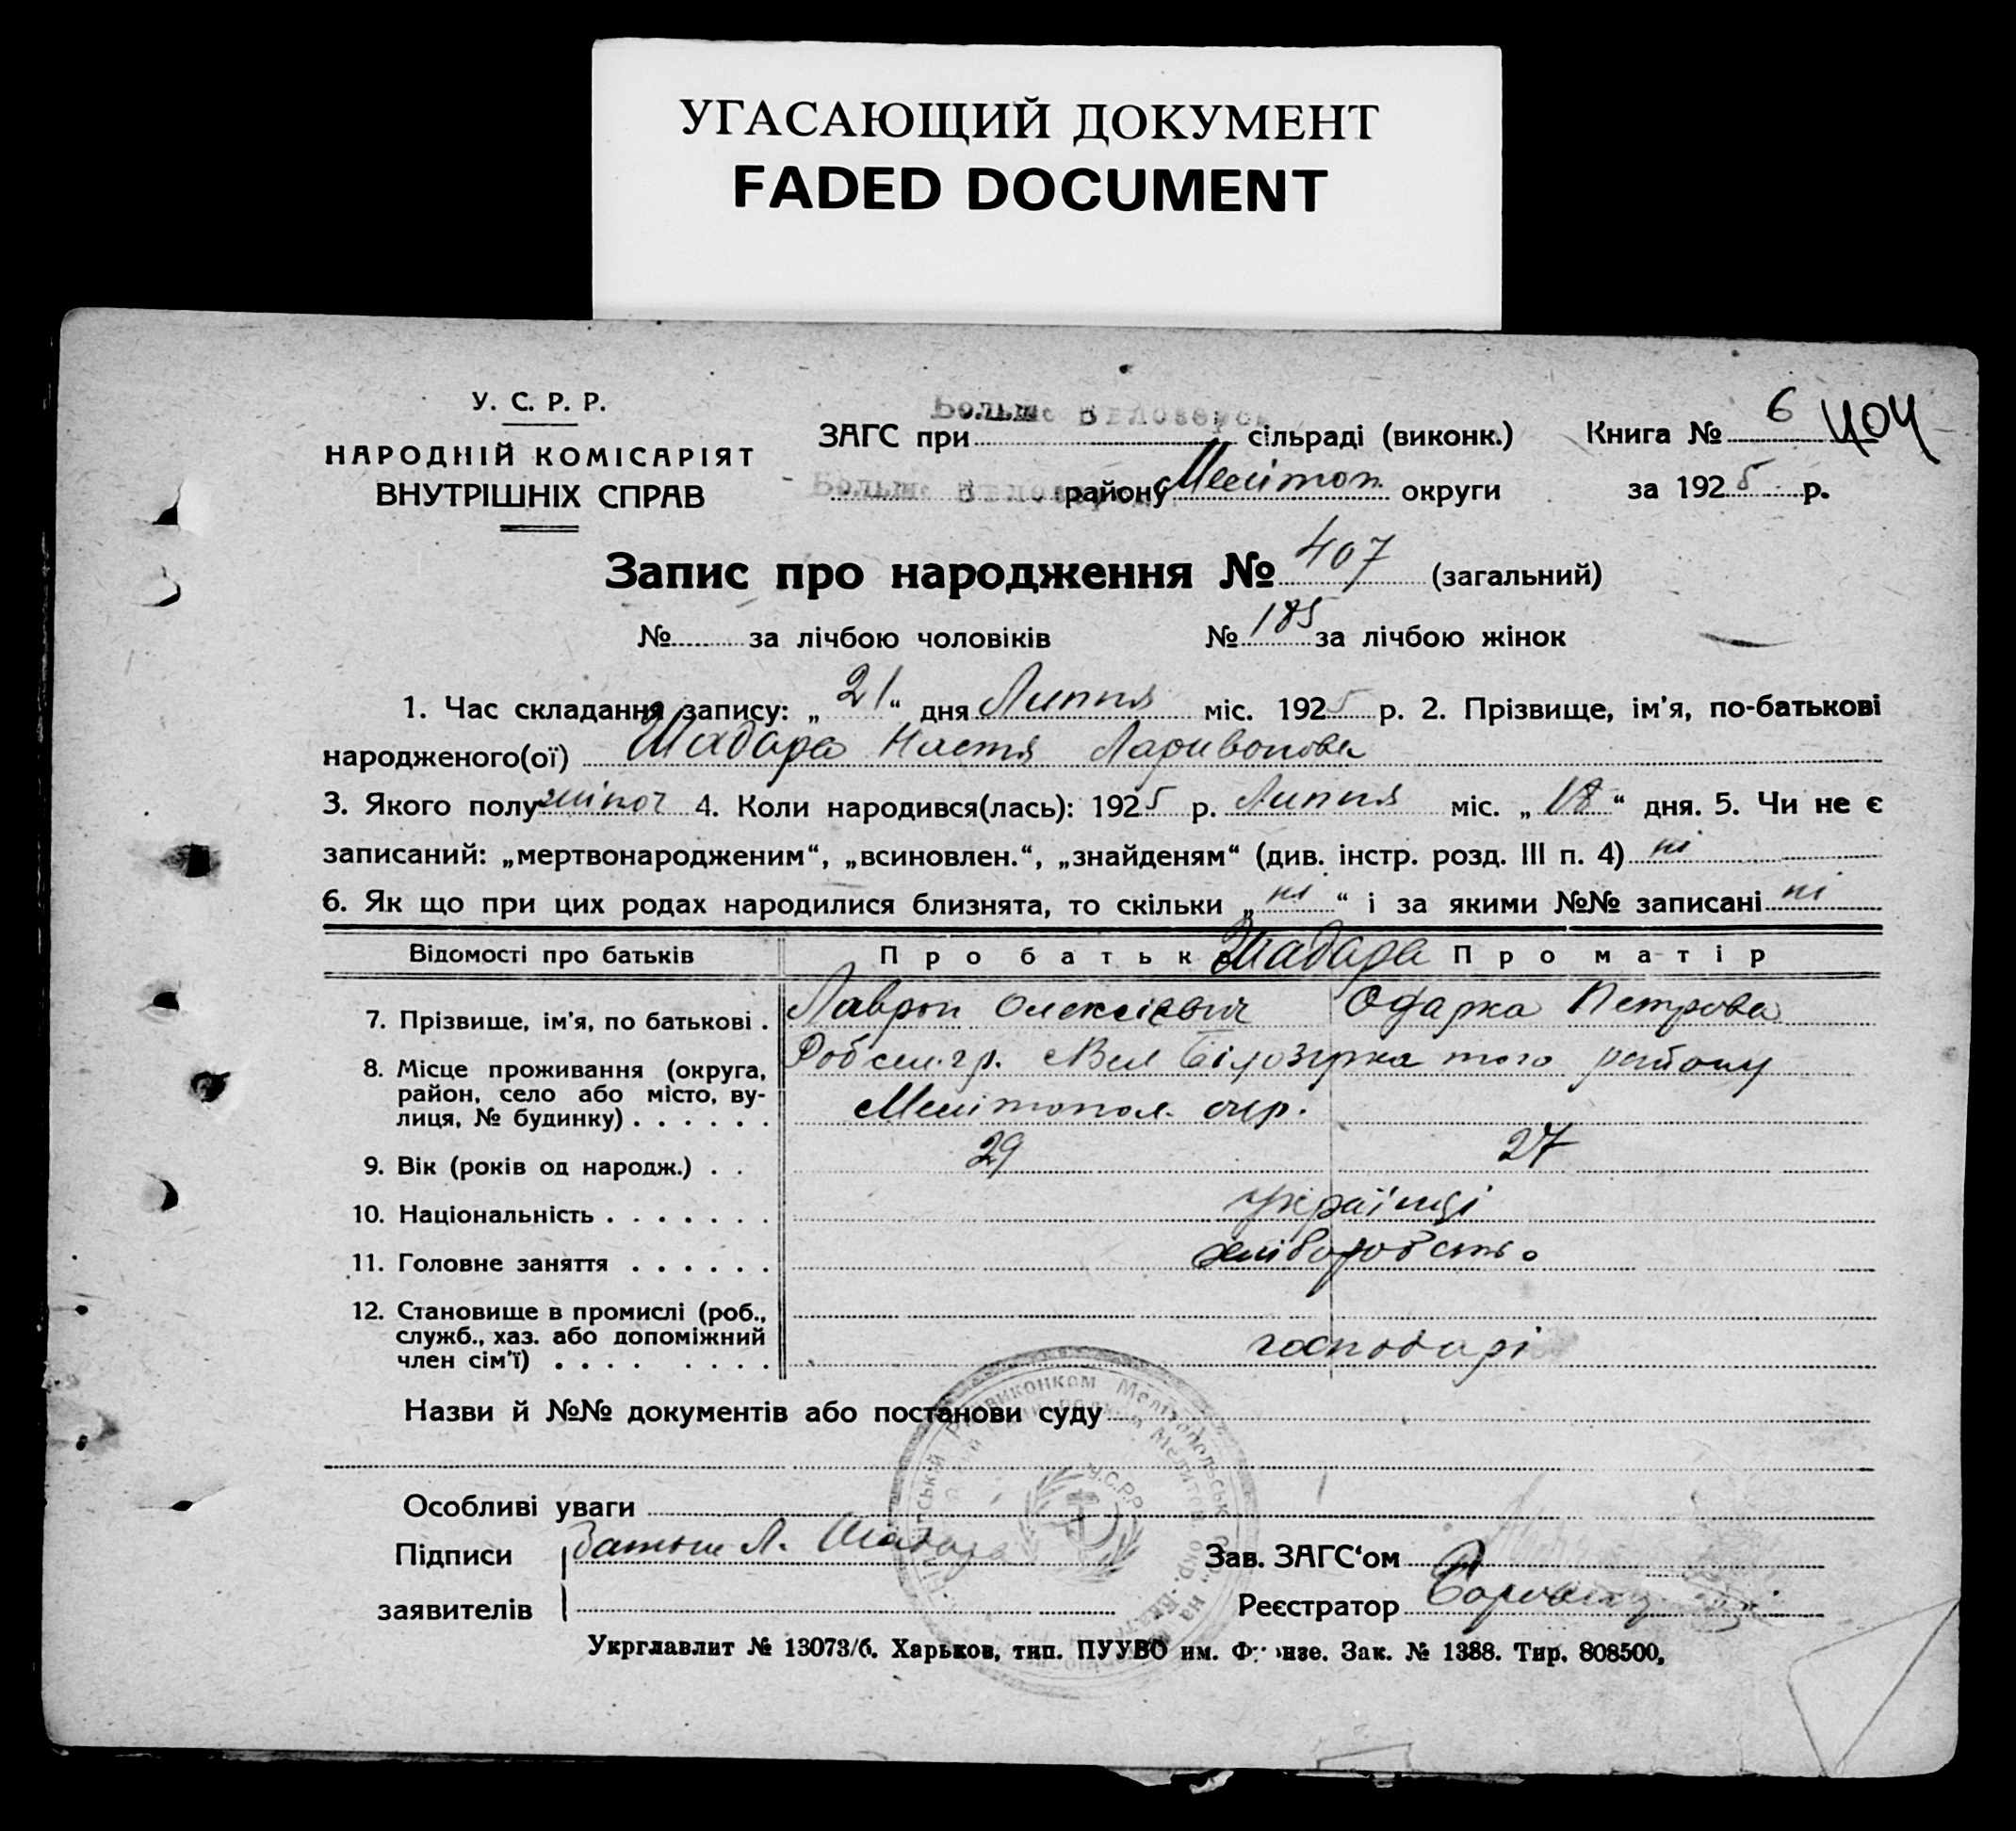 УГАСАЮЩИЙ ДОКУМЕНТ
FADED DOCUMENT
У. С. Р. Р.
НАРОДНІЙ КОМІСАРІЯТ
ВНУТРІШНІХ СПРАВ
ЗАГС при Больше Білозерск сільраді (виконк.)
Книга № 6 404
Больше району Мелітоп. округи
за 1925 р.
Запис про народження № 407 (загальний)
№ за лічбою чоловіків № 185 за лічбою жінок
1. Час складання запису: „21“ дня Липня міс. 1925 р. 2. Прізвище, ім'я, по-батькові
народженого(ої) Шабара Настя Ларивонова
3. Якого полу жіноч 4. Коли народився(лась): 1925 р. Липня міс. „18“ дня. 5. Чи не є
записаний: „мертвонародженим“, „всиновлен.“, „знайденям“ (див. інстр. розд. III п. 4) ні
6. Як що при цих родах народилися близнята, то скільки „ні“ і за якими №№ записані ні
Відомості про батьків Про батьк Шабара Про матір
7. Прізвище, ім'я, по батькові . Лавров Олексієвич Одарка Петрова
8. Місце проживання (округа, Вел Білозірка того району
район, село або місто, ву-
лиця, № будинку) . . . . . . Мелітопол. окр.
9. Вік (років од народж.) . . 29 27
10. Національність . . . . . . . українці
11. Головне заняття . . . . . . хліборобств.
12. Становище в промислі (роб.,
служб., хаз. або допоміжний
член сім'ї) . . . . . . . . господарі
Назви й №№ документів або постанови суду
Особливі уваги
Підписи Л. Шабара
Зав. ЗАГС'ом
заявителів
Реєстратор
У.С.Р.Р.
Укрглавлит № 13073/б. Харьков, тип. ПУУВО им. Фрунзе. Зак. № 1388. Тир. 808500,